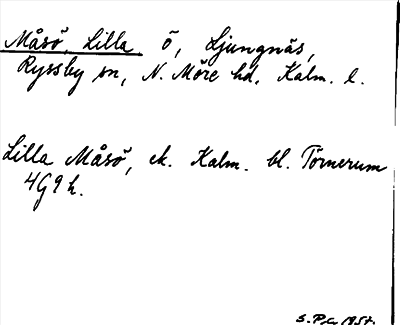 Måsö, Lilla ö, Ljungnäs,
Ryssby sn, N. Möre hd, Kalm. l.
Lilla Måsö, ek. Kalm. bl. Törnerum
4G9h.